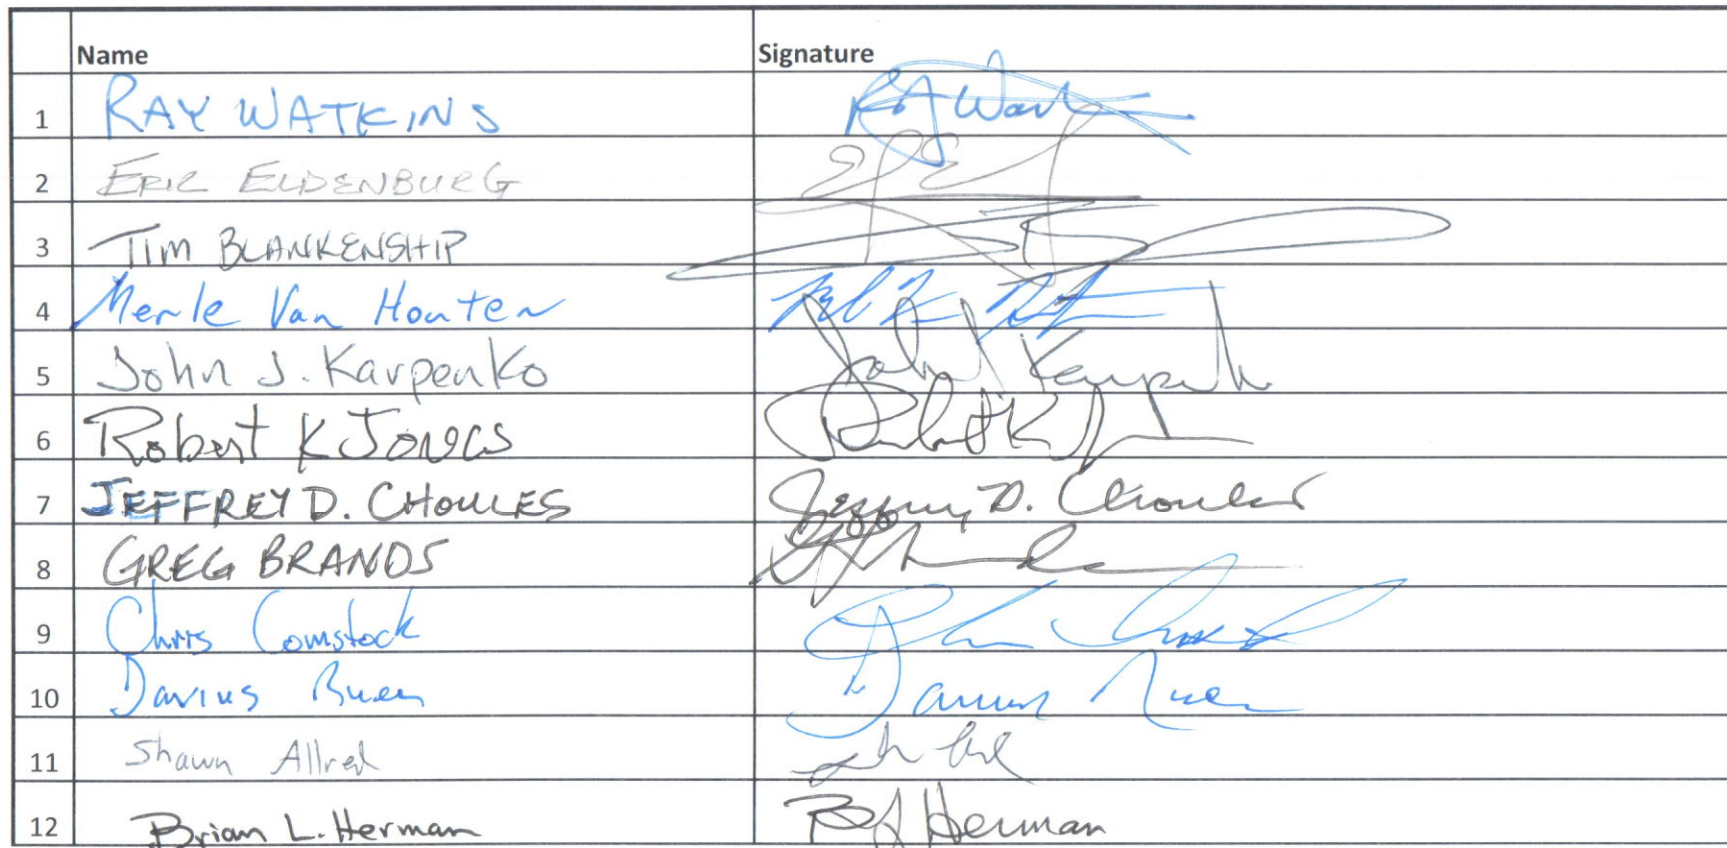 Name Signature
1 RAY WATKINS
2 ERIC ELDENBURG
3 TIM BLANKENSHIP
4 Merle Van Houten
5 John J. Karpenko John J Karpenko
6 Robert K Jones Robert K J
7 JEFFREY D. CHOULES Jeffrey D. Choules
8 GREG BRANDS
9 Chris Comstock
10 Darius Ruen Darius Ruen
11 Shawn Allred
12 Brian L. Herman B L Herman